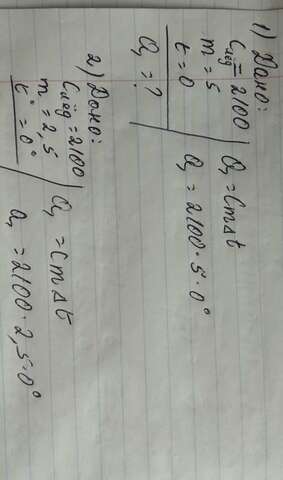 1) Дано:
Cлёд = 2100
m = 5
t = 0
Q₁ = ?
Q₁ = cmΔt
Q₁ = 2100 · 5 · 0°
2) Дано:
Cлёд = 2100
m = 2,5
t° = 0°
Q₁ = cmΔt
Q₁ = 2100 · 2,5 · 0°